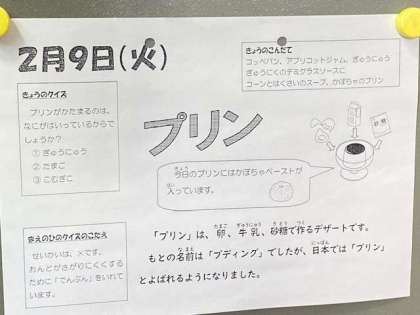 2月9日(火)
きょうのこんだて
コッペパン、アプリコットジャム、ぎゅうにゅう
ぎゅうにくのデミグラスソースに
コーンとはくさいのスープ、かぼちゃのプリン
きょうのクイズ
プリンがかたまるのは、
なにがはいっているからで
しょうか?
① ぎゅうにゅう
② たまご
③ こむぎこ
プリン
砂糖
今日のプリンにはかぼちゃペーストが
入っています。
まえのひのクイズのこたえ
せいかいは、×です。
おんどがさがりにくくする
ために「でんぷん」をいれて
います。
「プリン」は、卵、牛乳、砂糖で作るデザートです。
もとの名前は「プディング」でしたが、日本では「プリン」
とよばれるようになりました。